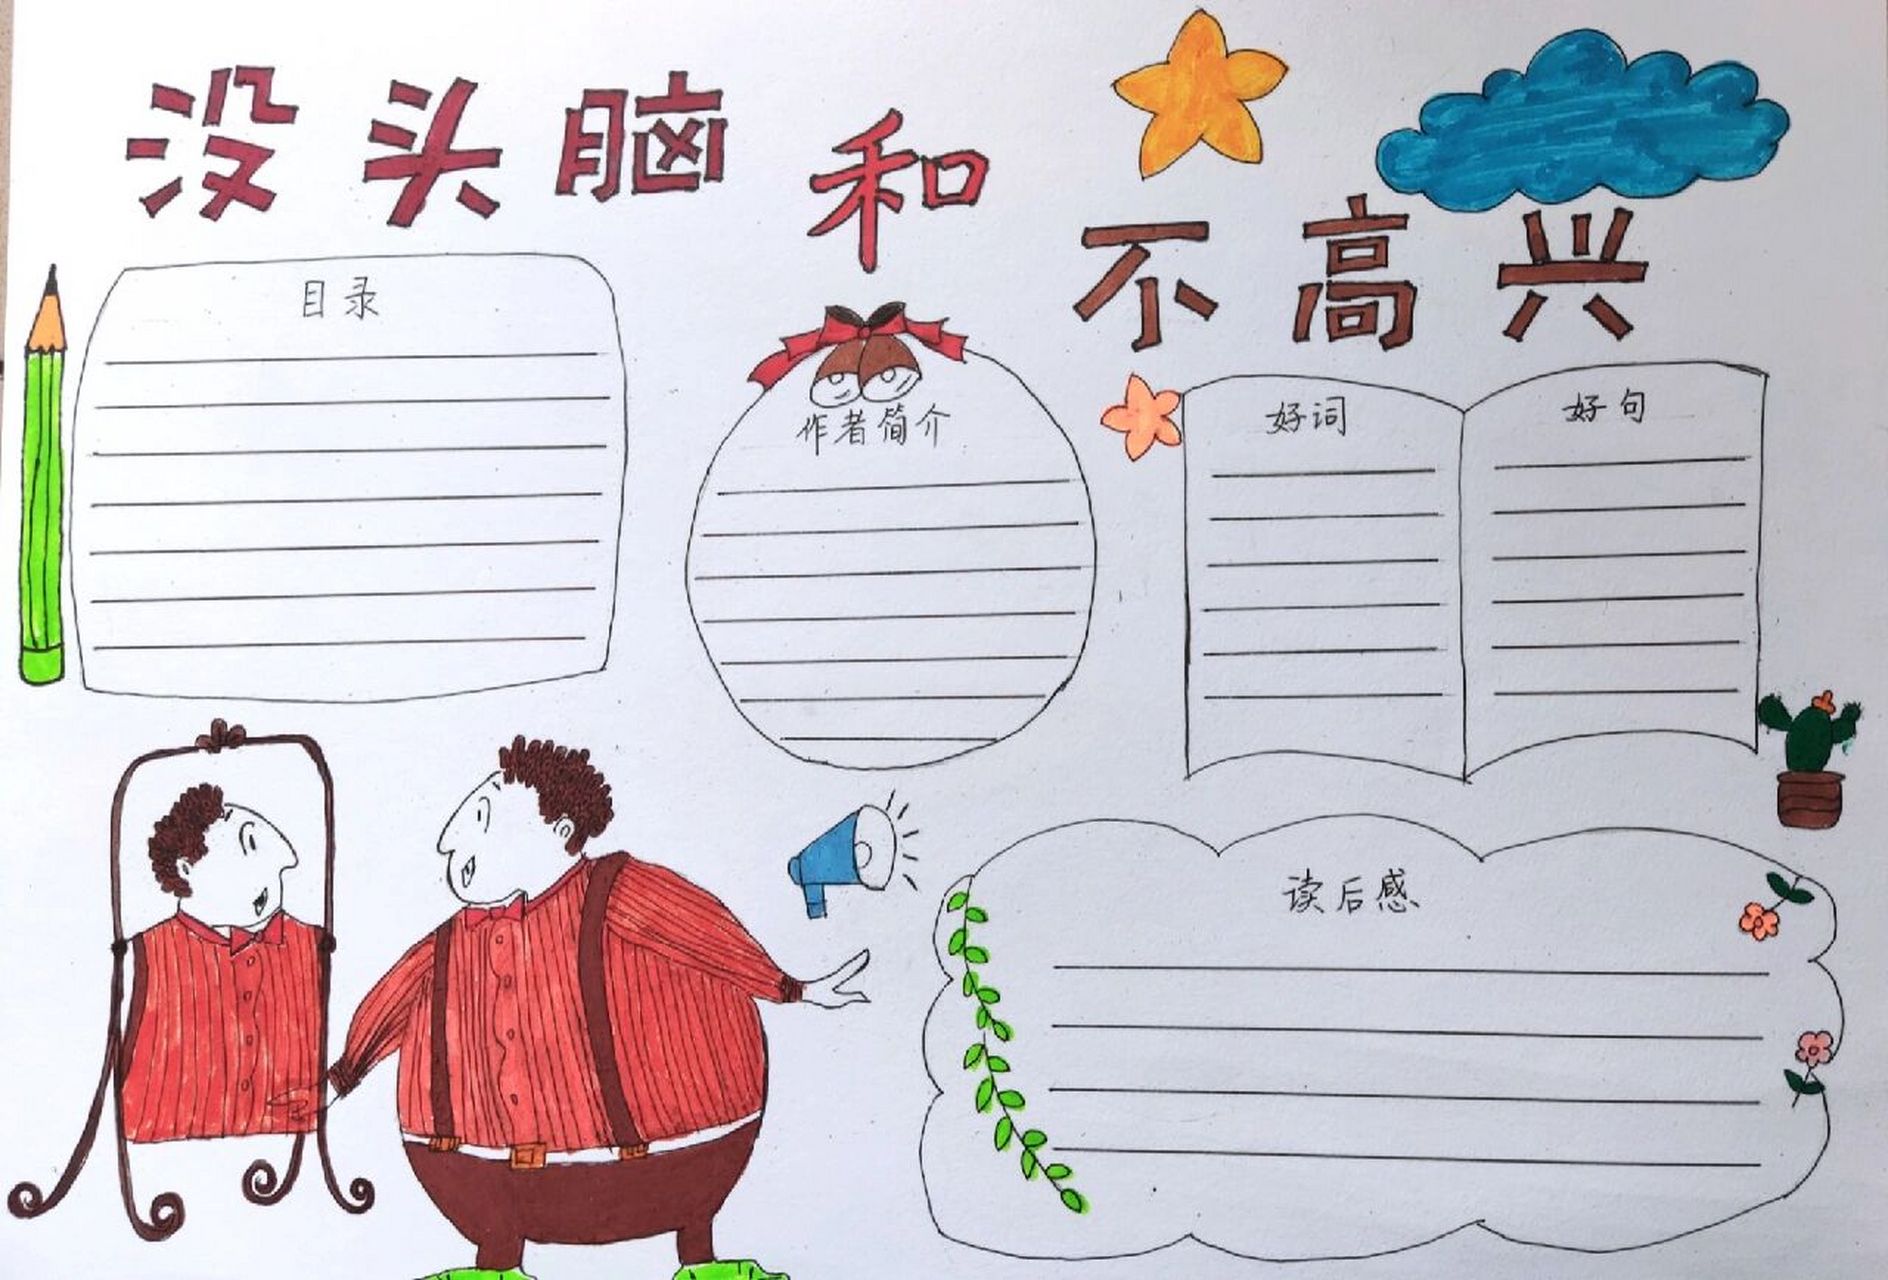 没头脑和不高兴
目录
作者简介
好词
好句
读后感